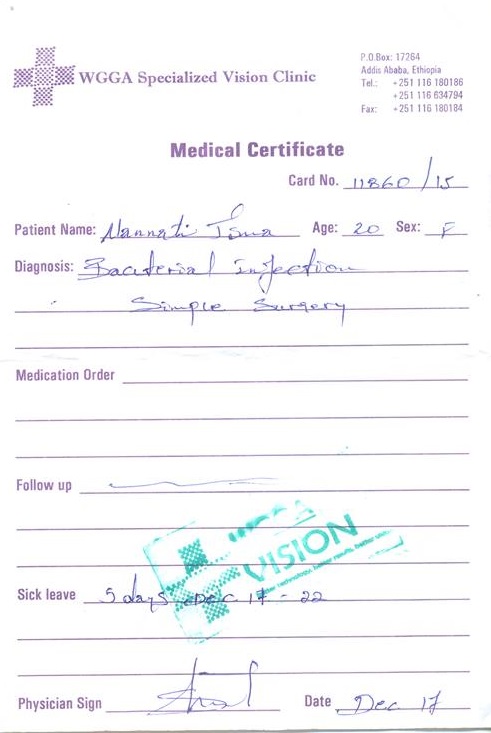 WGGA Specialized Vision Clinic
P.O.Box: 17264
Addis Ababa, Ethiopia
Tel.: +251 116 180186
+251 116 634794
Fax: +251 116 180184
Medical Certificate
Card No. 11860/15
Patient Name: Nannati Age: 20 Sex: F
Diagnosis: Bacterial Infection
Simple Surgery
Medication Order
Follow up
VISION
Sick leave 5 days Dec 17 - 22
Physician Sign Date Dec 17